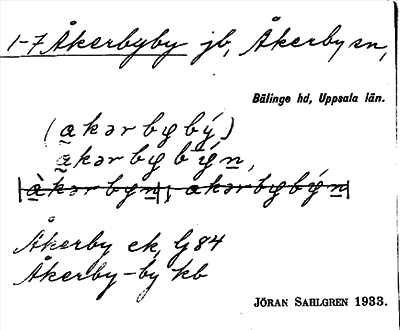 1-7 Åkerbyby jb, Åkerby sn,
Bälinge hd, Uppsala län.
(a̰kərbybý)
a̰kərbybýn,
àkərbyn, akərbybýn
Åkerby ek, G84
Åkerby-by kb
JÖRAN SAHLGREN 1933.